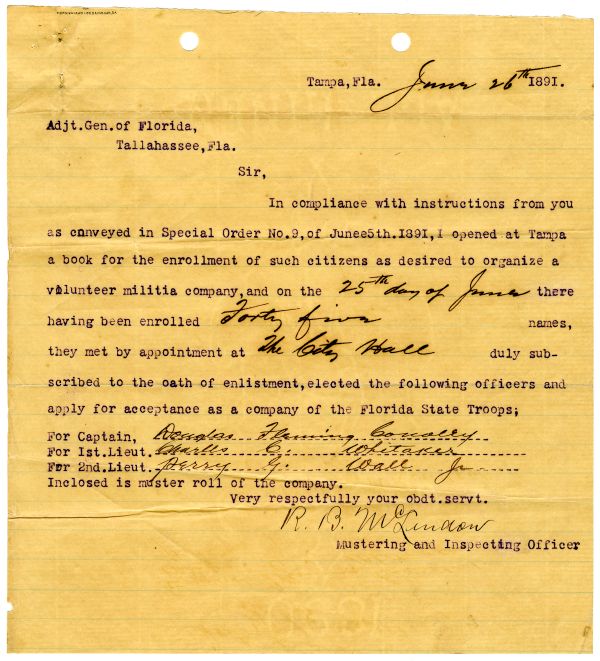 Tampa,Fla. June 26th 1891.
Adjt.Gen.of Florida,
Tallahassee,Fla.
Sir,
In compliance with instructions from you
as cnnveyed in Special Order No.9,of Junee5th.1891,I opened at Tampa
a book for the enrollment of such citizens as desired to organize a
volunteer militia company,and on the 25th day of June there
having been enrolled Forty five names,
they met by appointment at The City Hall duly sub-
scribed to the oath of enlistment,elected the following officers and
apply for acceptance as a company of the Florida State Troops;
For Captain, Douglas Fleming Conolley
For 1st.Lieut. Charles C. Whitaker
For 2nd.Lieut. Perry G. Wall Jr
Inclosed is muster roll of the company.
Very respectfully your obdt.servt.
R. B. McLendon
Mustering and Inspecting Officer